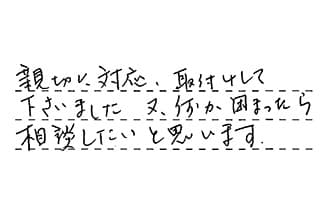 親切に対応、取付けして
下さいました 又、何か困まったら
相談したいと思います.